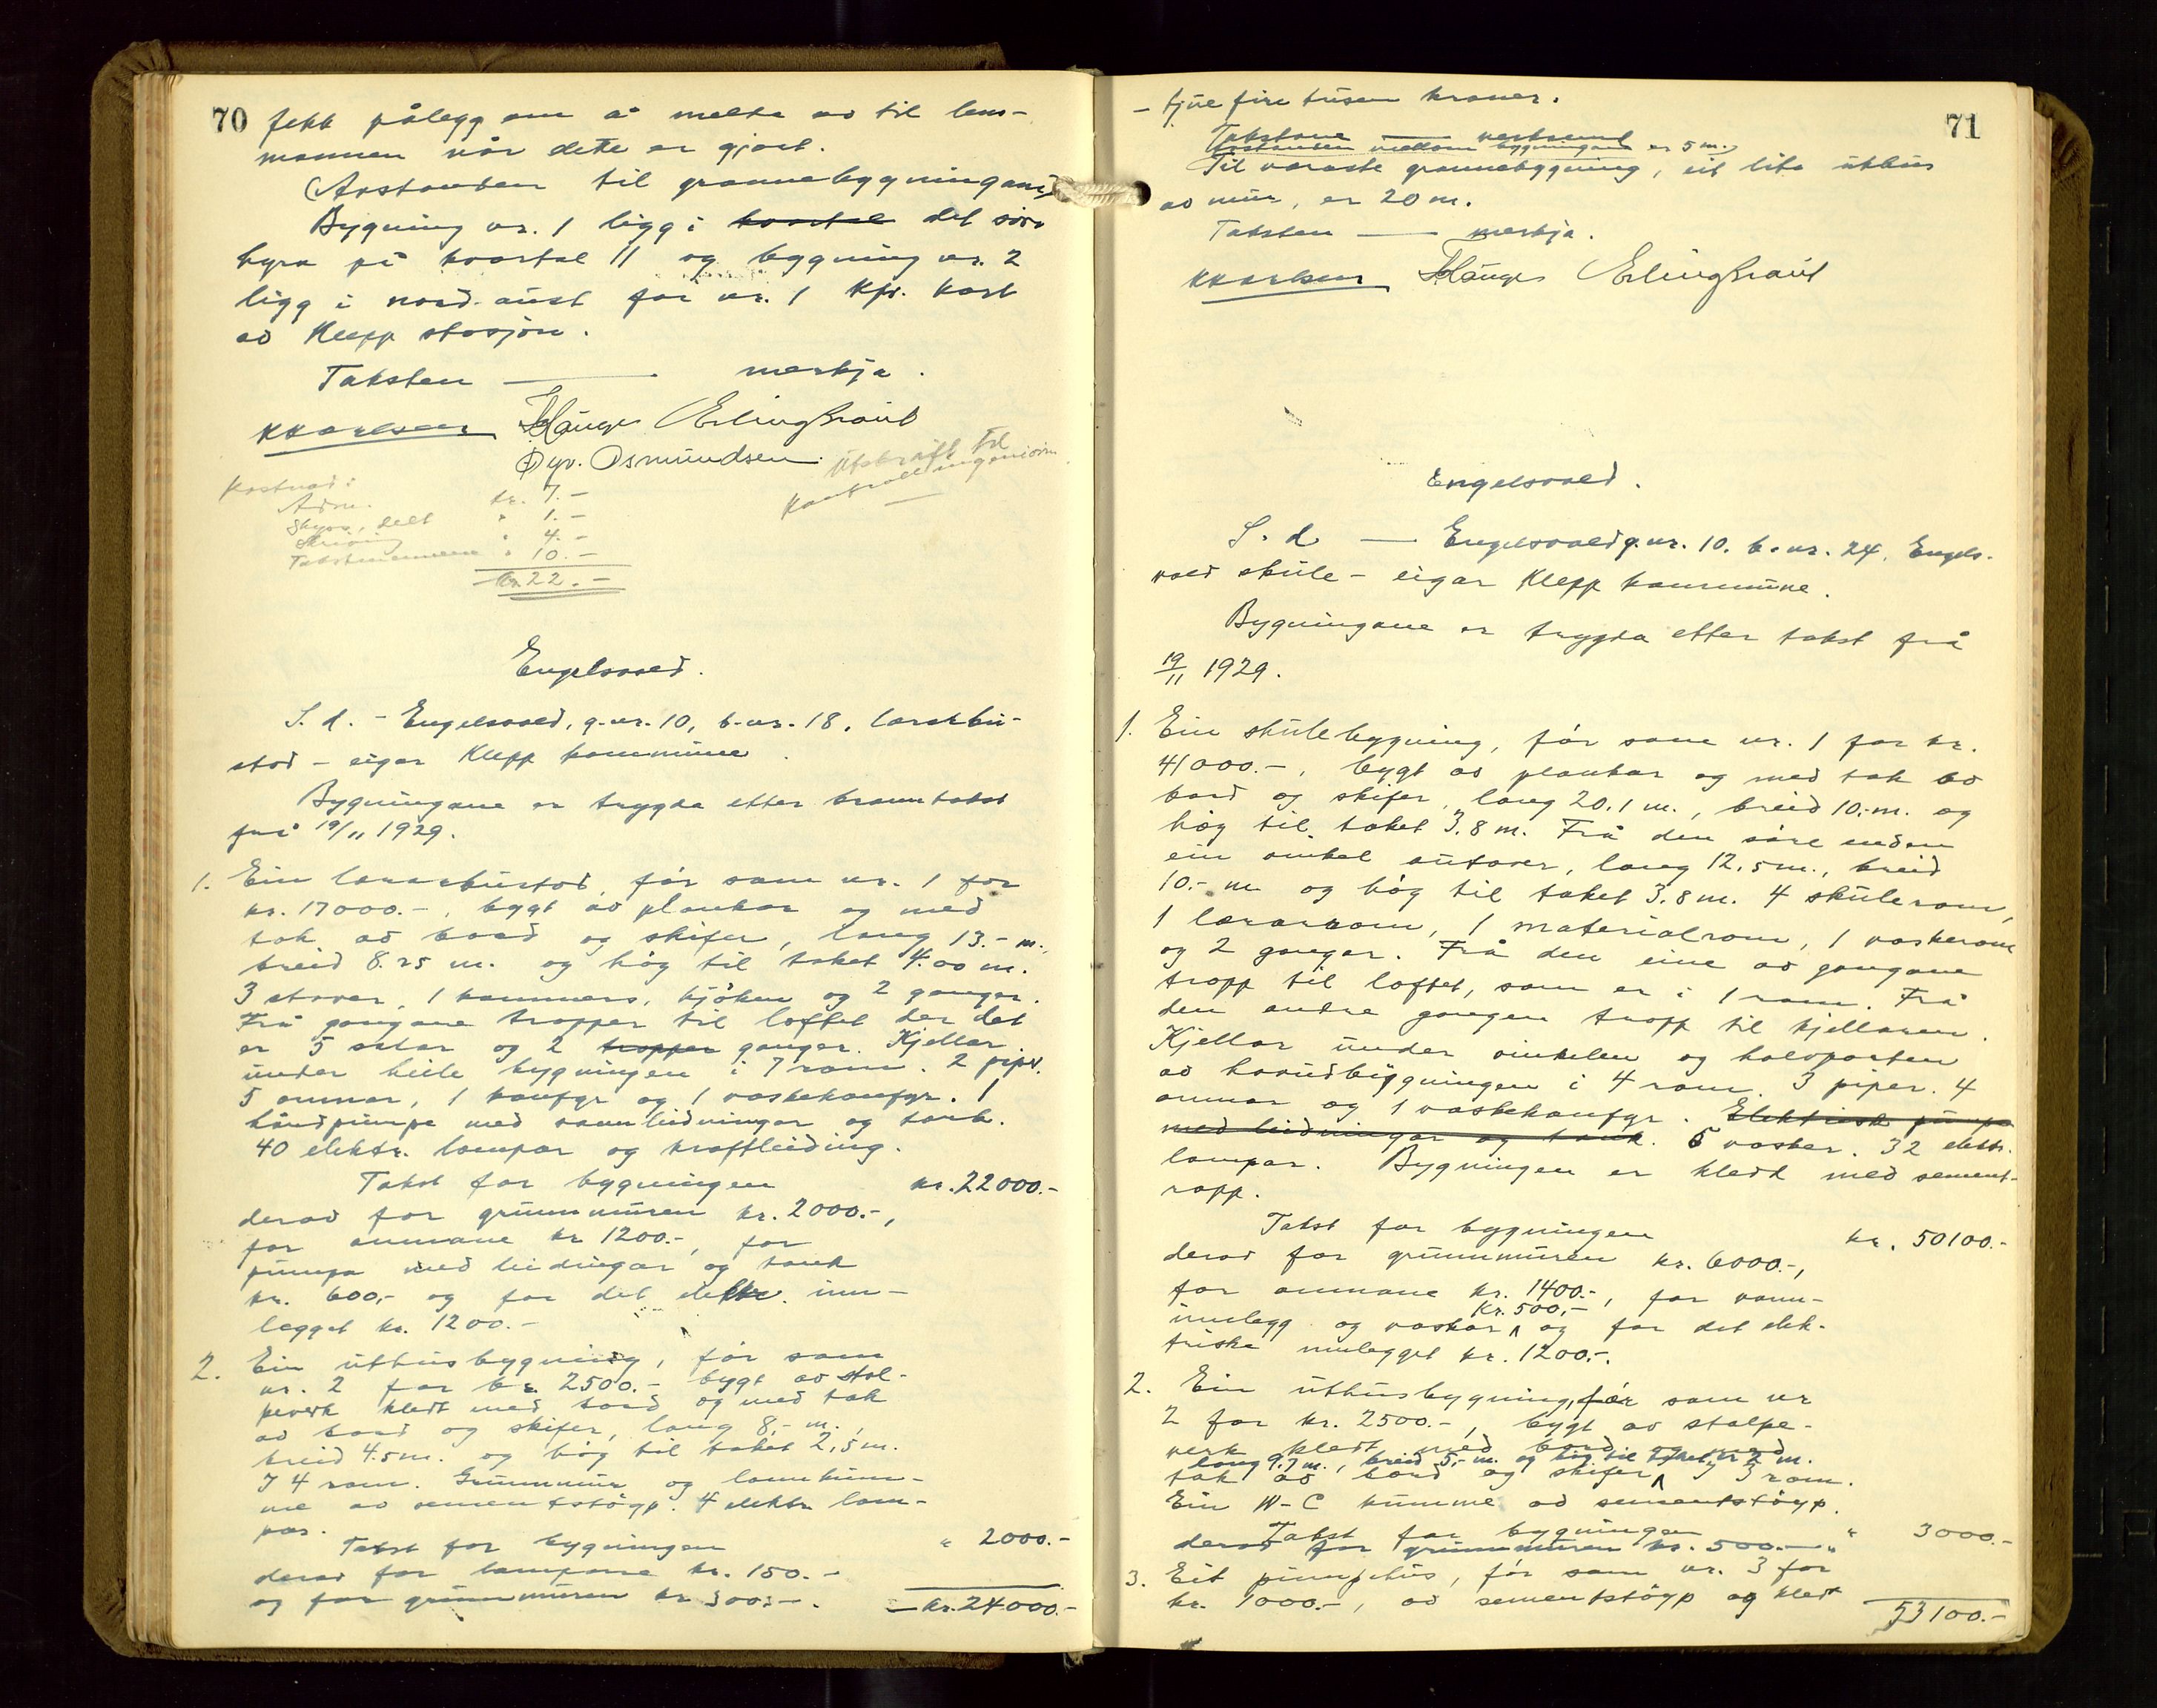 70
fekk pålegg om å melde av til lens-
mannen når dette er gjort.
(Avstanden til grannebygningane)
Bygning nr. 1 ligg i kvartal det sör
hyrn på kvartal 11 og bygning nr. 2
ligg i nord-aust for nr. 1 kfr. kart
av Klepp stasjon.
Taksten — merkja.
KKarlsen THauge Erling Braut
Gyv. Osmundsen.
Utskrift til
kontrollingeniören
Kostnad:
Adm. kr. 7.-
Skyss, delt " 1.-
Skriving " 4.-
Takstmennene " 10.-
kr. 22.-
Engelsvold.
S. d. - Engelsvold, g.nr. 10, b.nr. 18, lærarbu-
stad - eigar Klepp kommune.
Bygningane er trygda etter branntakst
frå 19/11 1929.
1. Ein lærarbustad, før som nr. 1 for
kr. 17000.-, bygt av plankar og med
tak av bord og skifer, lang 13.- m.,
breid 8.25 m. og høg til taket 4.00 m.
3 stover, 1 kammers, kjøken og 2 ganger.
Frå gangane tropper til loftet der det
er 5 salar og 2 tropper ganger. Kjellar
under heile bygningen i 7 rom. 2 piper.
5 omnar, 1 komfyr og 1 vaskekomfyr. 1
håndpumpe med vannleidningar og tank.
40 elektr. lampor og kraftleiding.
Takst for bygningen kr. 22000.-
derav for grunnmuren kr. 2000.-,
for omnane kr 1200.-, for
pumpa med leidingar og tank
kr. 600,- og for det elektr. inn-
legget kr. 1200.-
2. Ein uthusbygning, før som
nr. 2 for kr. 2500.- bygt av stol-
peverk kledt med bord og med tak
av bord og skifer, lang 8,- m.,
breid 4.5 m. og høg til taket 2,5 m.
I 4 rom. Grunnmur og lannkum-
me av sementstöyp. 4 elektr lam-
par.
Takst for bygningen " 2000.-
derav for lampene kr. 150.-
og for grunnmuren kr 300.-. kr. 24000.-
71
- tjue fire tusen kroner.
Takstane — vedtaend
Avstanden mellom bygningane er 5 m.
Til næraste grannebygning, eit lite uthus
av mur, er 20 m.
Taksten — merkja.
KKarlsen THauge Erling Braut
Engelsvold.
S. d — Engelsvold g.nr. 10. b.nr. 24, Engels-
vold skule - eigar Klepp kommune.
Bygningane er trygda etter takst frå
19/11 1929.
1. Ein skulebygning, før som nr. 1 for kr.
41000.-, bygt av plankar og med tak av
bord og skifer, lang 20.1 m., breid 10.- m. og
høg til taket 3.8 m. Frå den søre enden
ein vinkel austover, lang 12,5 m., breid
10.- m og høg til taket 3.8 m. 4 skulerom,
1 lærarrom, 1 materialrom, 1 vaskerom
og 2 gangar. Frå den eine av gangane
tropp til loftet, som er i 1 rom. Frå
den andre gangen tropp til kjellaren.
Kjellar under vinkelen og halvparten
av hovudbygningen i 4 rom. 3 piper. 4
omnar og 1 vaskekomfyr. Elektrisk pumpe
med leidningar og tank. 5 vasker. 32 elektr.
lampar. Bygningen er kledt med sement-
rapp.
Takst for bygningen kr. 50100.-
derav for grunnmuren kr. 6000.-,
for omnane kr. 1400.-, for vann-
innlegg og vaskar kr. 500,- og for det elek-
triske innlegget kr. 1200.-.
2. Ein uthusbygning, før som nr
2 for kr. 2500.-, bygt av stolpe-
verk kledt med bord og med
lang 9.7 m., breid 5,- m. og høg til taket 2 m.
tak av bord og skifer, I 3 rom.
Ein W-C kumme av sementstöyp.
Takst for bygningen " 3000.-
derav for grunnmuren kr. 500.-
3. Eit pumpehus, før som nr. 3 for
kr. 1000.-, av sementstöyp og kledt
53100.-